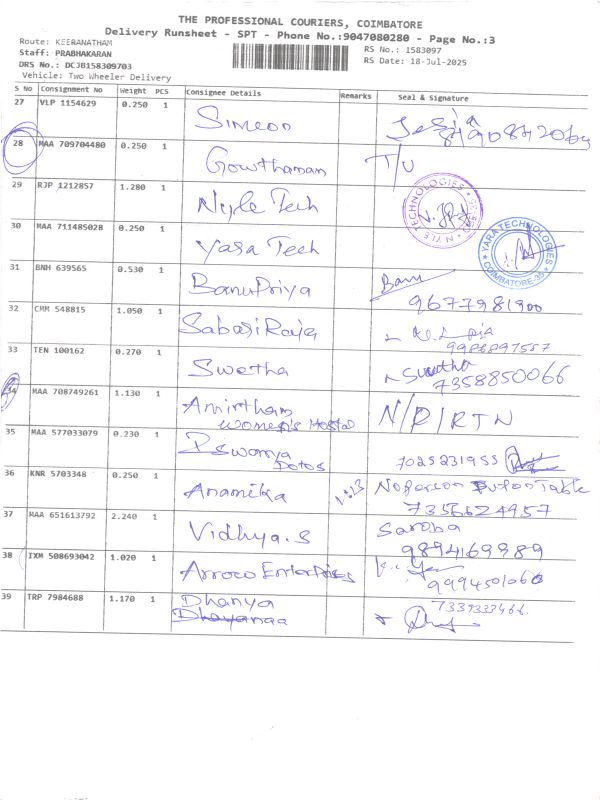 THE PROFESSIONAL COURIERS, COIMBATORE
Delivery Runsheet - SPT - Phone No.:9047080280 - Page No.:3
Route: KEERANATHAM
RS No.: 1583097
Staff: PRABHAKARAN
RS Date: 18-Jul-2025
DRS No.: DCJB158309703
Vehicle: Two Wheeler Delivery
S No Consignment No Weight PCS Consignee Details Remarks Seal & Signature
27 VLP 1154629 0.250 1 Simeon
28 MAA 709704480 0.250 1 Gowthaman T/U
29 RJP 1212857 1.280 1 Nyle Tech
NYLE TECHNOLOGIES
30 MAA 711485028 0.250 1 Yasa Tech
YARA TECHNOLOGIES
COIMBATORE-35
31 BNH 639565 0.530 1 BanuPriya Banu
9677981900
32 CMM 548815 1.050 1 SabariRaja
33 TEN 100162 0.270 1 Swetha Swetha
7358850066
34 MAA 708749261 1.130 1 Amirtham N/P/RTN
Women's Hostel
35 MAA 577033079 0.230 1 Iswarya 7025231955
36 KNR 5703348 0.250 1 Anamika
7356624957
37 MAA 651613792 2.240 1 Vidhya.S Saroba
9894169989
38 IXM 508693042 1.020 1 Arroco Enterprises
9994501060
39 TRP 7984688 1.170 1 Dhanya 7339333466